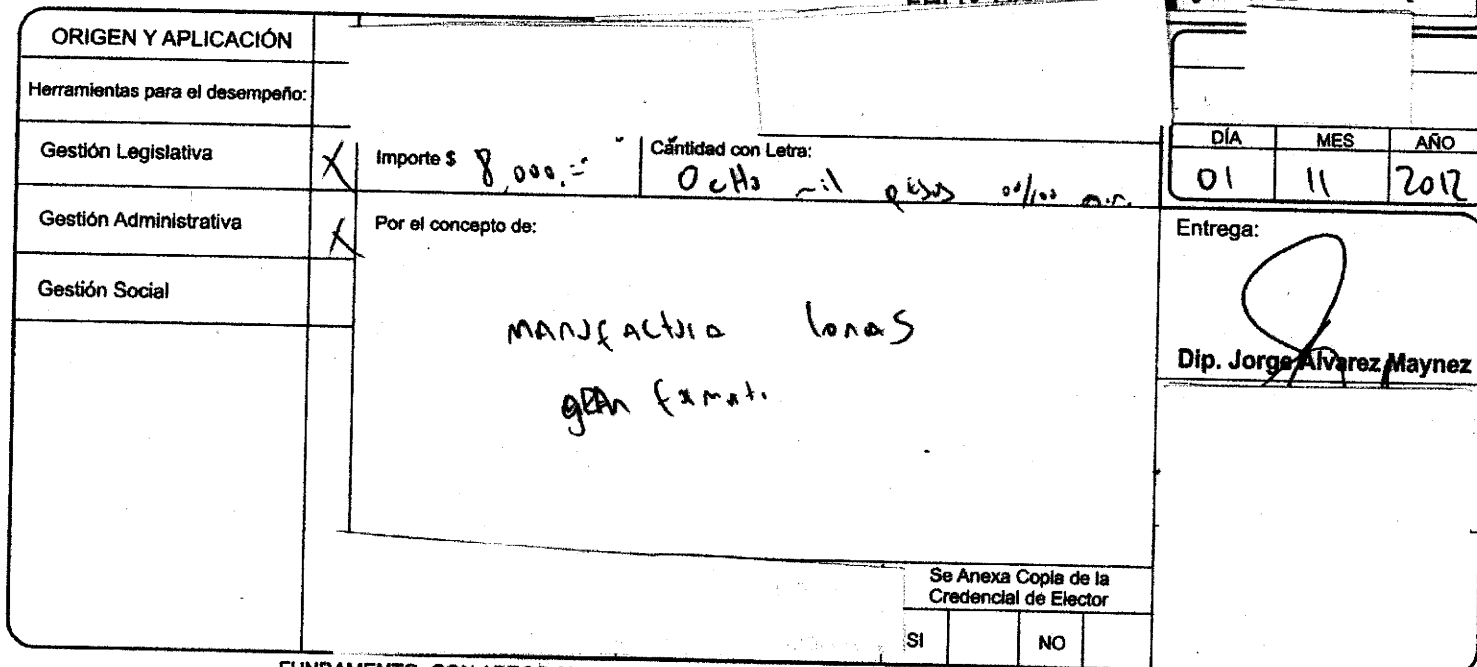 ORIGEN Y APLICACIÓN
Herramientas para el desempeño:
Gestión Legislativa X
Gestión Administrativa X
Gestión Social
Importe $ 8,000.=
Cántidad con Letra:
Ocho mil pesos 00/100 m.n.
Por el concepto de:
MANUFACTURA lonas
gRAn formato
DÍA MES AÑO
01 11 2012
Entrega:
Dip. Jorge Alvarez Maynez
Se Anexa Copia de la
Credencial de Elector
SI NO